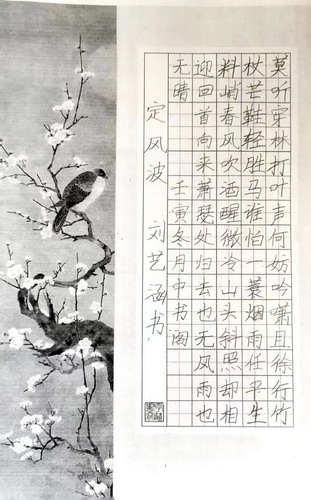 莫听穿林打叶声何妨吟啸且徐行竹
杖芒鞋轻胜马谁怕一蓑烟雨任平生
料峭春风吹酒醒微冷山头斜照却相
迎回首向来萧瑟处归去也无风雨也
无晴 壬寅冬月中书阁
定风波 刘艺涵书